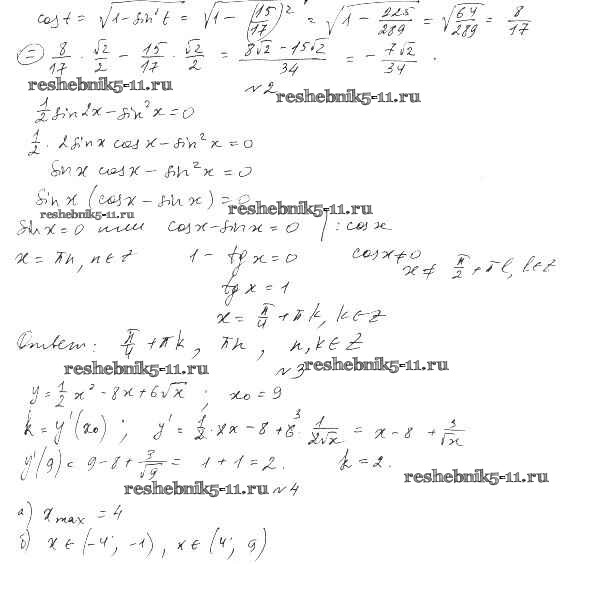 cos t = √(1 - sin² t) = √(1 - (15/17)²) = √(1 - 225/289) = √(64/289) = 8/17
⊜ 8/17 · √2/2 - 15/17 · √2/2 = (8√2 - 15√2)/34 = - 7√2/34 .
reshebnik5-11.ru
№2
reshebnik5-11.ru
1/2 sin 2x - sin² x = 0
1/2 · 2 sin x cos x - sin² x = 0
sin x cos x - sin² x = 0
sin x (cos x - sin x) = 0
reshebnik5-11.ru
reshebnik5-11.ru
sin x = 0 или cos x - sin x = 0 | : cos x
x = πn, n ∈ Z 1 - tg x = 0 cos x ≠ 0
x ≠ π/2 + πl, l ∈ Z
tg x = 1
x = π/4 + πk, k ∈ Z
Ответ: π/4 + πk, πn, n, k ∈ Z
reshebnik5-11.ru
№3
reshebnik5-11.ru
y = 1/2 x² - 8x + 6√x ; x₀ = 9
k = y'(x₀) ; y' = 1/2 · 2x - 8 + 6³ · 1/(2√x) = x - 8 + 3/√x
y'(9) = 9 - 8 + 3/√9 = 1 + 1 = 2. k = 2.
reshebnik5-11.ru
reshebnik5-11.ru
№4
а) x max = 4
б) x ∈ (-4; -1), x ∈ (4; 9)